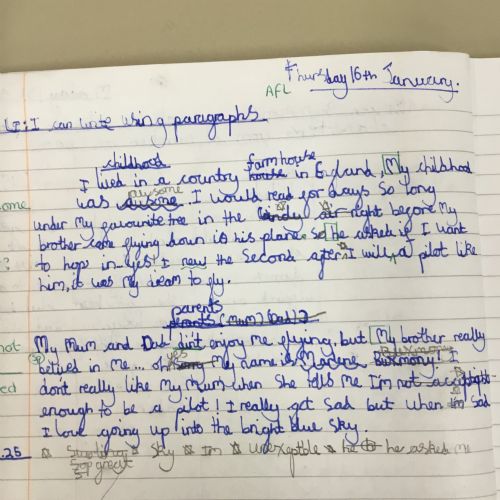 Thursday 16th January.
AFL
LF: I can write using paragraphs
childhood
farmhouse
I lived in a country house in England, My childhood
was awsome. I would read for days so long
under my favourite tree in the right before My
brother came flying down in his plane. So he asked if I want
to hop in.. yes! I new the second after I will a pilot like
him, it was my dream to fly.
parents
parents (Mum) (Dad)
My Mum and Dad din't enjoy me flying, but My brother really
belived in me... oh yes My name is Burmony! I
don't really like my mum when she tells me I'm not
enough to be a pilot! I really get sad but when I'm sad
I love going up into the bright blue sky.
.25 Sky I'm Unexeptble he he asked me
great